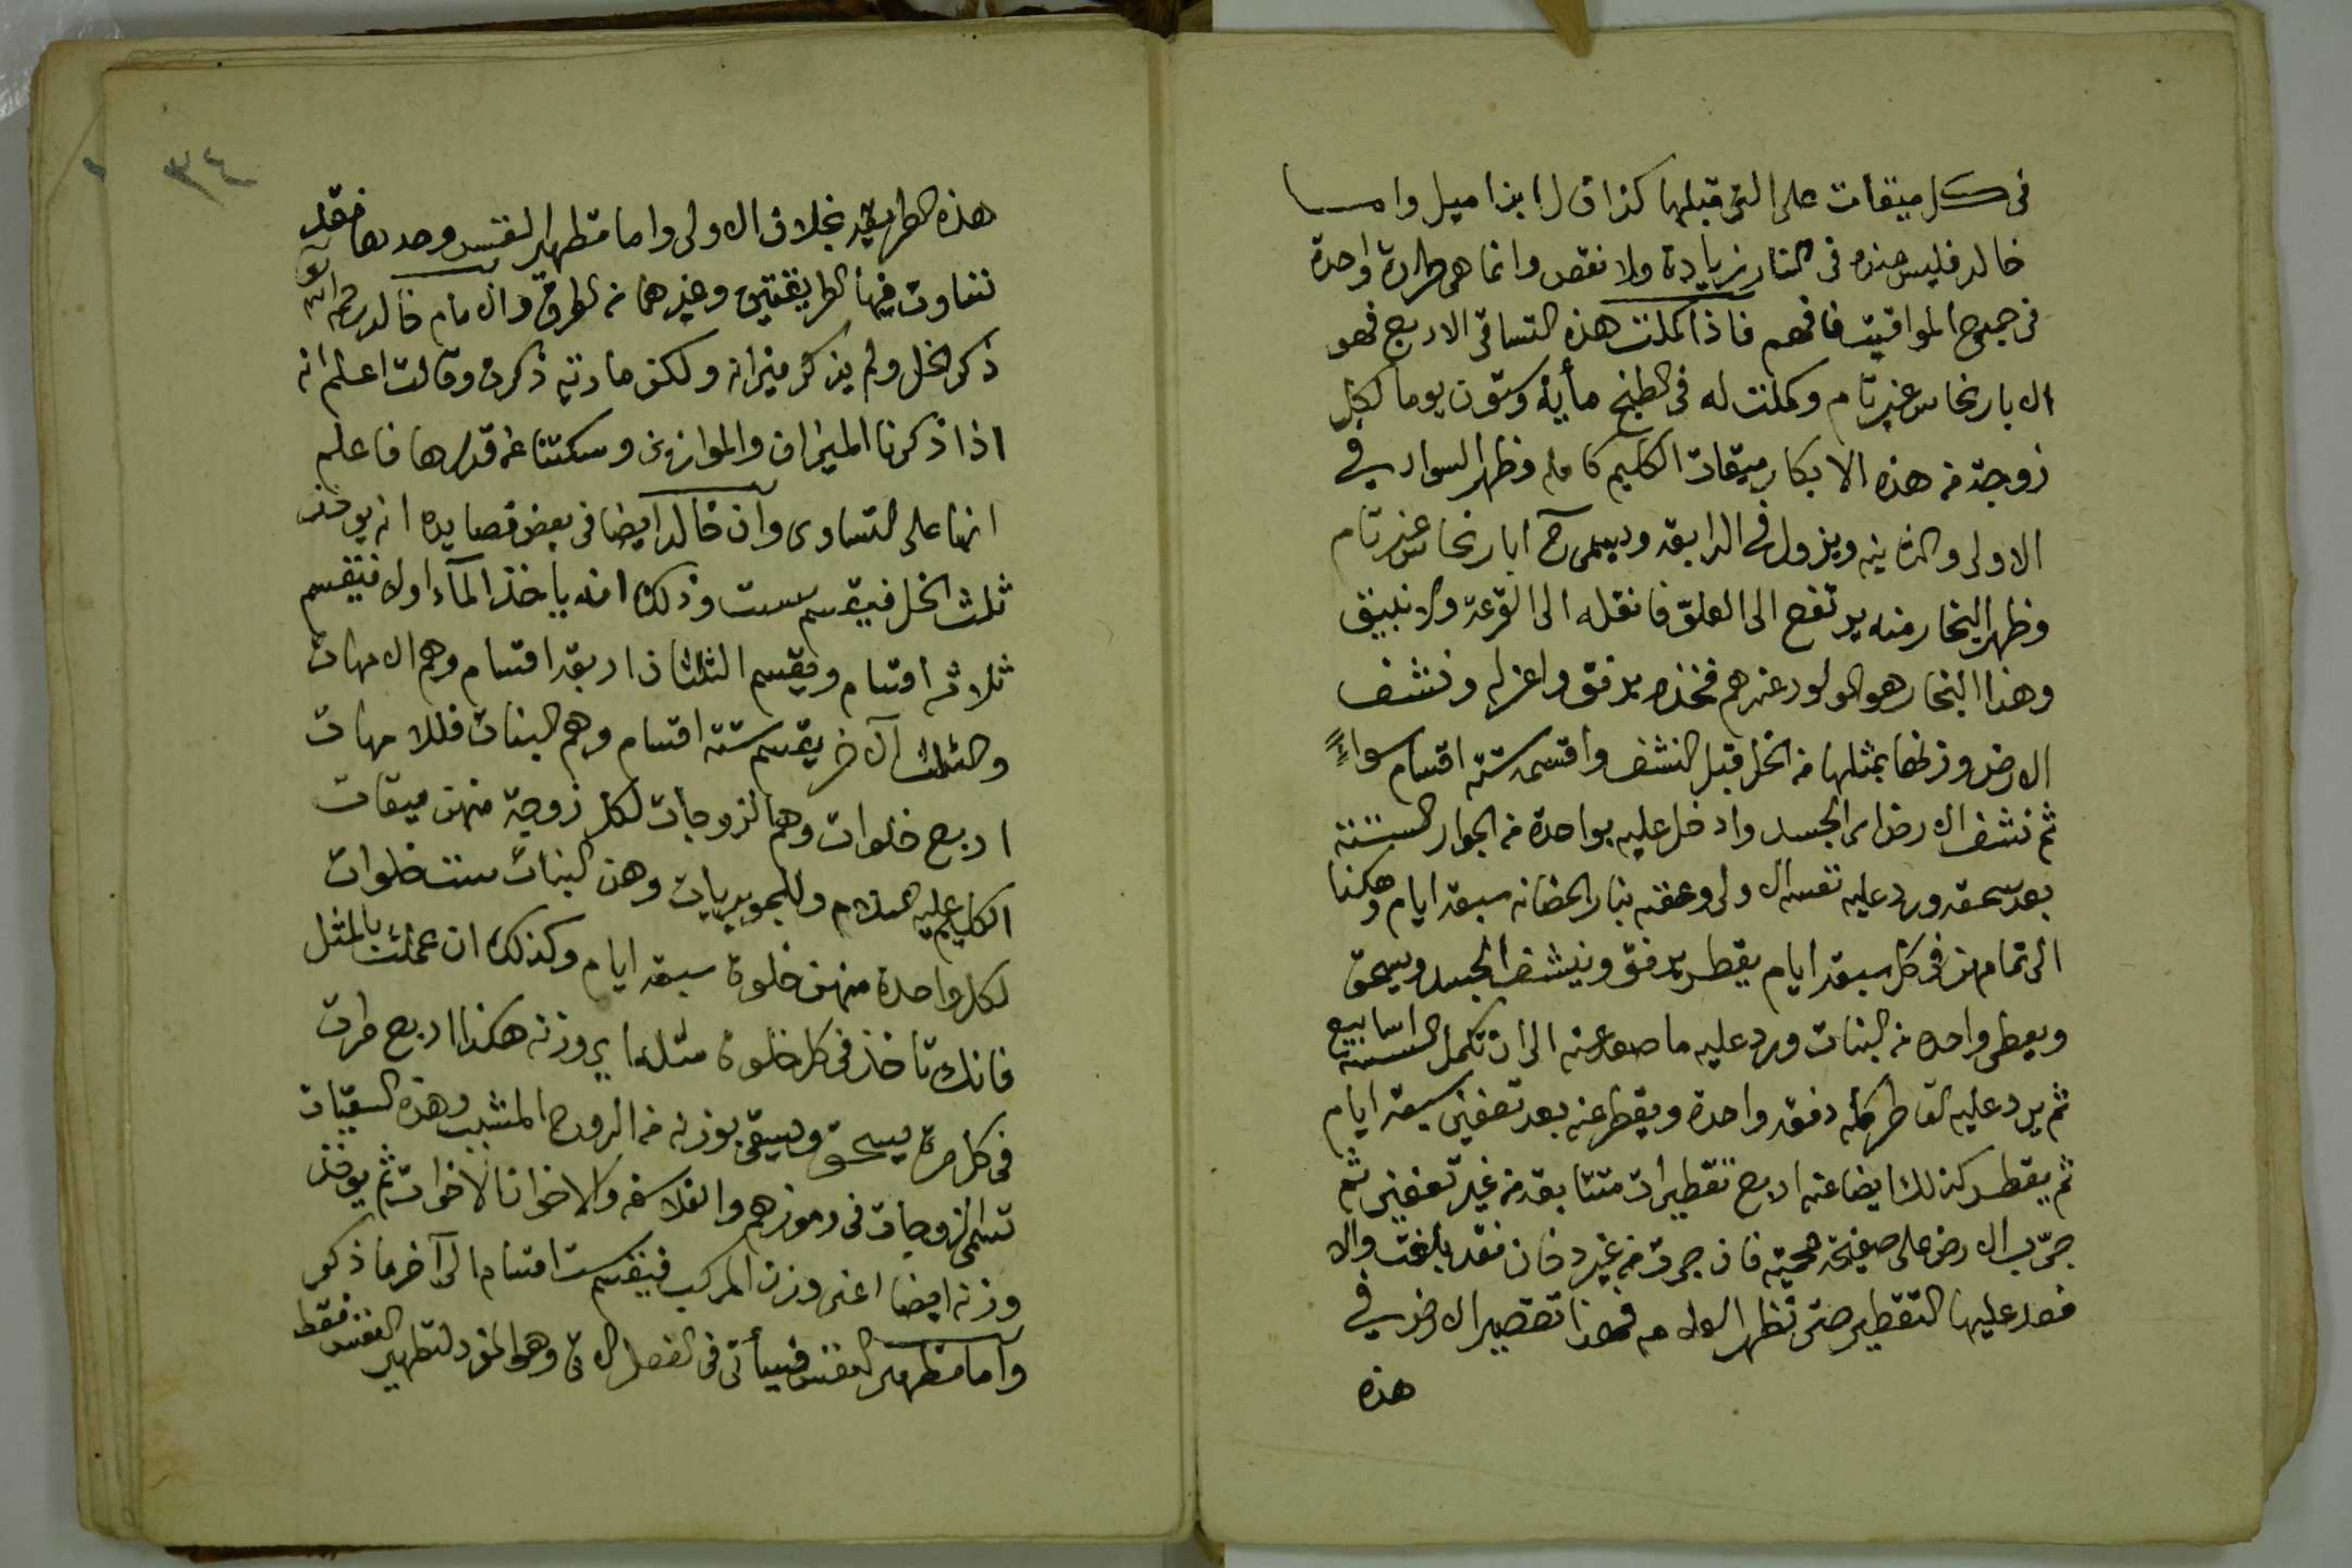 في كل ميقات على التي قبلها كذا قال ابن اميل واما
خالد فليس عنده في النار زيادة ولا نقص وانما هي طرادة واحدة
في جميع المواقيت فافهم فاذا كملت هذه التساقي الاربع فهو
الابار نحاس غير تام وكملت له في الطبخ مأية وستون يوما لكل
زوجة من هذه الابكار ميقات الكليم كامله وظهر السواد في
الاولى والثانيه ويزول في الرابعة ويسمى ابار نحاس غير تام
وظهر البخار منه يرتفع الى العلو فانقله الى القرعة والانبيق
وهذا البخار هو المولود عندهم فخذه برفق واعزله ونشف
الارض وزنها بمثلها من الخل قبل النشف واقسمه ستة اقسام سواءً
ثم نشف الارض اى الجسد وادخل عليه بواحدة من الجوار الستة
بعد سحقه ورد عليه نفسه الاولى وعفنه بنار الحضانه سبعة ايام وهكذا
الى تمامهن في كل سبعة ايام يقطر برفق وينشف الجسد ويسحق
ويعطى واحده من البنات ورد عليه ما صعد عنه الى ان تكمل الستة اسابيع
ثم يرد عليه القاطر كله دفعة واحدة ويقطر عنه بعد تعفين سبعة ايام
ثم يقطر كذلك ايضا عنه اربع تقطيرات متتابعة من غير تعفين ثم
جرّب الارض على صفيحة محمية فان جرت من غير دخان فقد بلغت والا
فعد عليها التقطير حتى تظهر العلامه فهذا تقصير الارض في
هذه
٣٤
هذه الطريقة بخلاف الاولى واما تطهير النفس وحدها فقد
تتفاوت فيها الطريقتين وغيرهما من الطرق والامام خالد رحمه الله
ذكر الخل ولم يذكر ميزانه ولكن مارية ذكرت وقالت اعلم انه
اذا ذكرنا الميزان والموازين وسكتنا عن قدرها فاعلم
انها على التساوى وان خالد ايضا في بعض قصايده انه يوخذ
ثلث الخل فيقسم ست وذلك انه ياخذ الماء اولا فيقسم
ثلاثة اقسام ويقسم الثلثان اربعة اقسام وهم الامهات
والثلث الاخر يقسم ستة اقسام وهم البنات فللامهات
اربع خلوات وهم الزوجات لكل زوجة منهن ميقات
الكليم عليه السلام وللجويريات وهن البنات ست خلوات
لكل واحدة منهن خلوة سبعة ايام وكذلك ان عملت بالمثل
فانك تاخذ في كل خلوة مثله اى وزنه هكذا اربع مرات
في كل مرة يسحق ويسقى بوزنه من الروح المشبب وهذه السقيات
تسمى الزوجات في رموزهم والفلاسفه والاخوان الاخوات ثم يوخذ
وزنه ايضا اعنى وزن المركب فيقسم ست اقسام الى آخر ما ذكر
واما تطهير النفس فسيأتي في الفصل الاتي وهو المفرد لتطهير النفس فقط